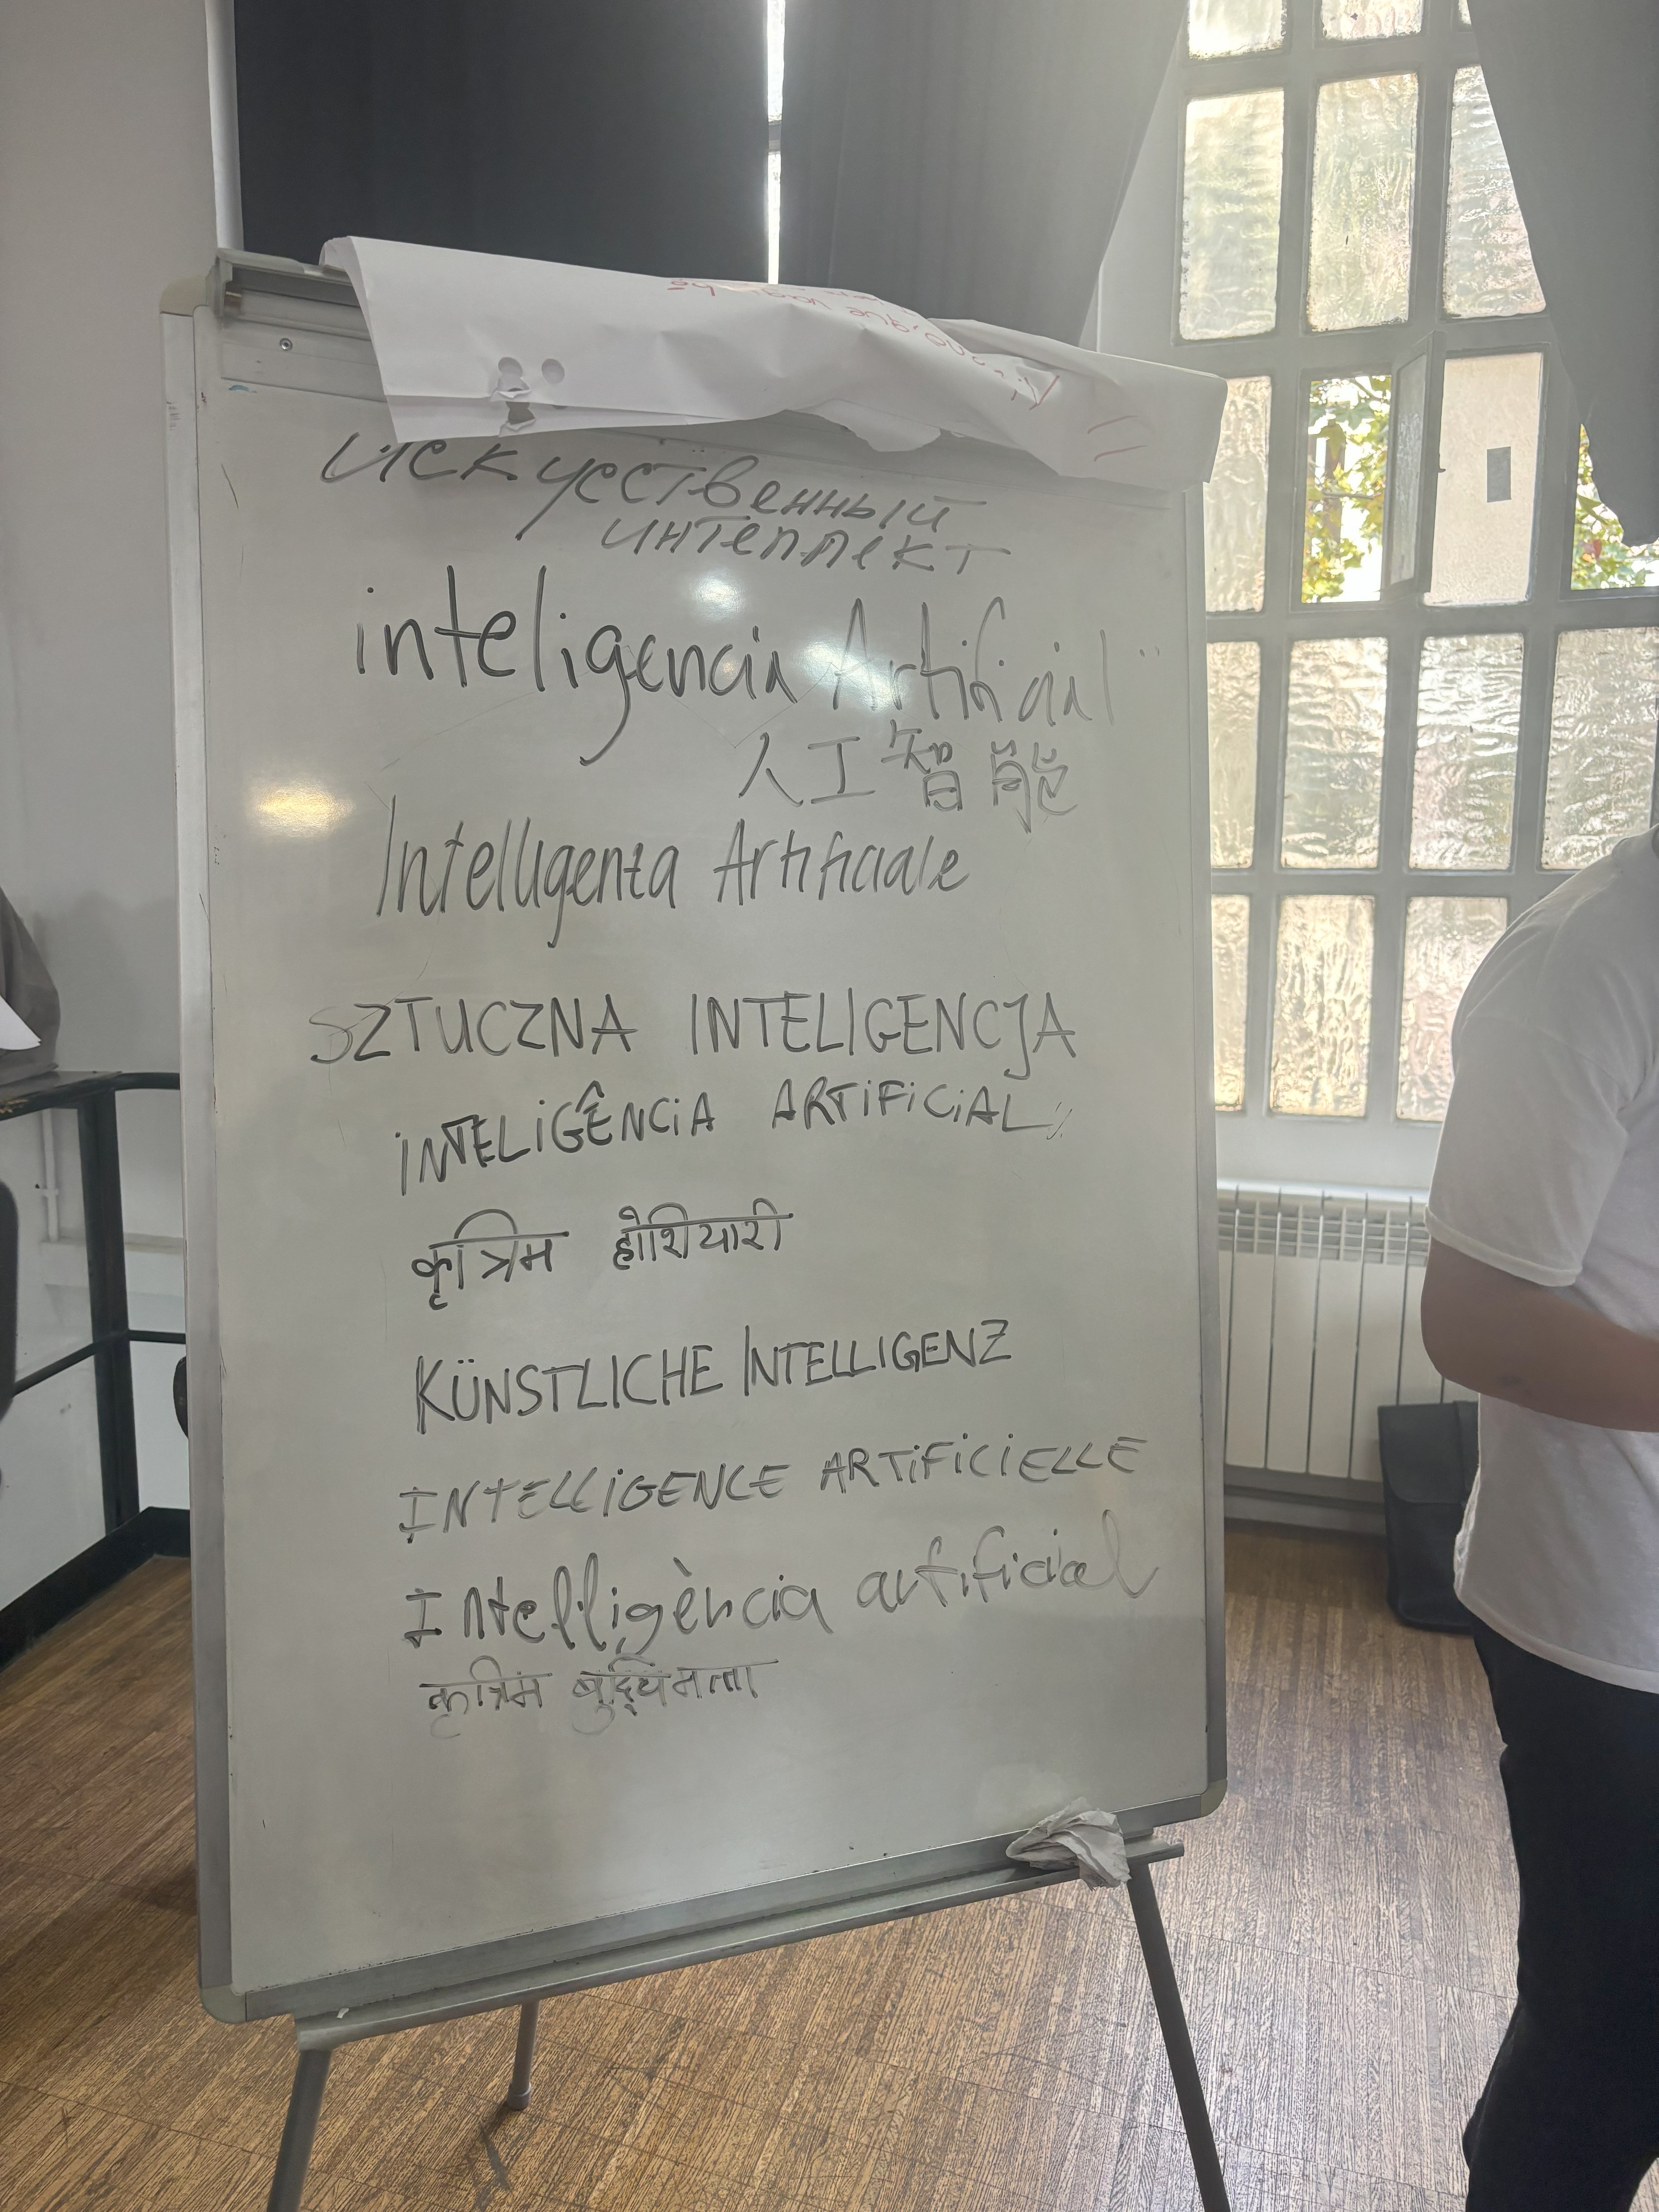 искусственный
интеллект
inteligencia Artificial
人工智能
Intelligenta Artificiale
SZTUCZNA INTELIGENCJA
INTELIGÊNCIA ARTIFICIAL
कृत्रिम होशियारी
KÜNSTLICHE INTELLIGENZ
INTELLIGENCE ARTIFICIELLE
Intelligència artificial
कृत्रिम बुद्धिमत्ता